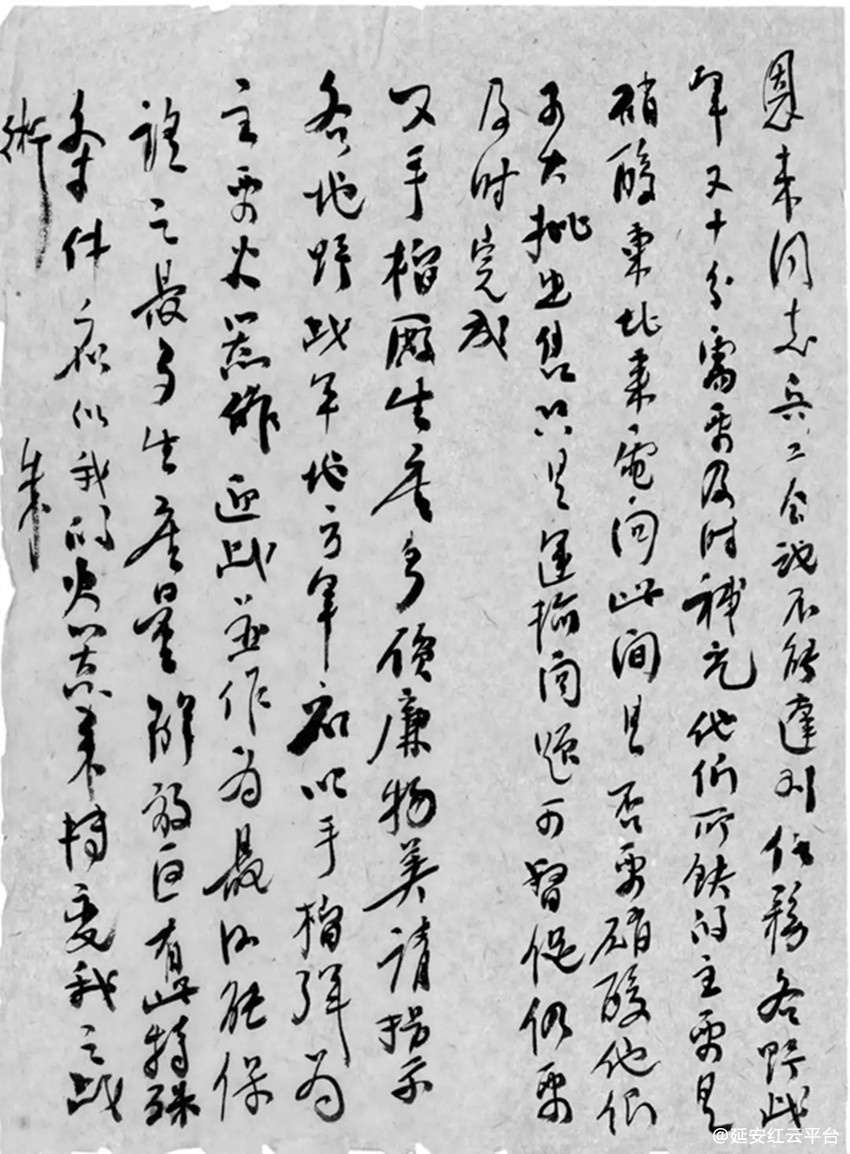 恩来同志兵工会议不能达到任务各野战
军又十分需要及时补充他们所缺的主要是
硝酸东北来电问此间是否要硝酸他们
可大批出售只是运输问题可督促仍要
及时完成
又手榴弹生产多价廉物美请指示
各地野战军地方军应以手榴弹为
主要火器作近战并作为最可能保
证之最多生产量解放区有此特殊
条件应似我的火器来转变我之战
术
朱
@延安红云平台